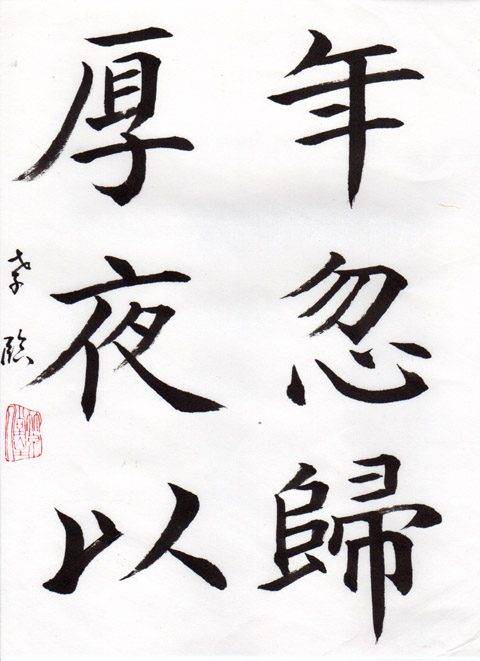 年忽歸
厚夜以
臨